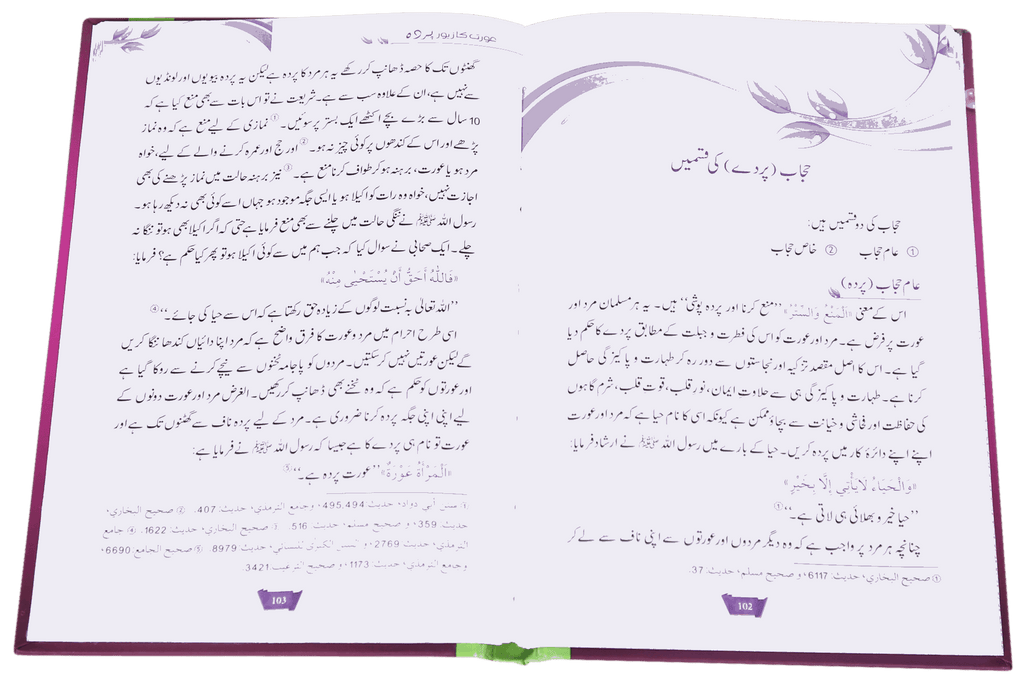 حجاب (پردے) کی قسمیں
حجاب کی دو قسمیں ہیں:
① عام حجاب ② خاص حجاب
عام حجاب (پردہ)
اس کے معنی «اَلْمَنْعُ وَالسَّتْرُ» ”منع کرنا اور پردہ پوشی“ ہیں۔ یہ ہر مسلمان مرد اور
عورت پر فرض ہے۔ مرد اور عورت کو اس کی فطرت و جبلت کے مطابق پردے کا حکم دیا
گیا ہے۔ اس کا اصل مقصد تزکیہ اور نجاستوں سے دور رہ کر طہارت و پاکیزگی حاصل
کرنا ہے۔ طہارت و پاکیزگی ہی سے حلاوت ایمان، نورِ قلب، قوتِ قلب، شرم گاہوں
کی حفاظت اور فحاشی و خیانت سے بچاؤ ممکن ہے کیونکہ اسی کا نام حیا ہے کہ مرد اور عورت
اپنے اپنے دائرۂ کار میں پردہ کریں۔ حیا کے بارے میں رسول اللہ ﷺ نے ارشاد فرمایا:
«وَالْحَيَاءُ لَايَأْتِي إِلَّا بِخَيْرٍ»
”حیا خیر و بھلائی ہی لاتی ہے۔“①
چنانچہ ہر مرد پر واجب ہے کہ وہ دیگر مردوں اور عورتوں سے اپنی ناف سے لے کر
① صحيح البخاري، حديث: 6117، و صحيح مسلم، حديث: 37.
102
عورت کا زیور پردہ
گھٹنوں تک کا حصہ ڈھانپ کر رکھے یہ ہر مرد کا پردہ ہے لیکن یہ پردہ بیویوں اور لونڈیوں
سے نہیں ہے، ان کے علاوہ سب سے ہے۔ شریعت نے تو اس بات سے بھی منع کیا ہے کہ
10 سال سے بڑے بچے اکٹھے ایک بستر پر سوئیں۔① نمازی کے لیے منع ہے کہ وہ نماز
پڑھے اور اس کے کندھوں پر کوئی چیز نہ ہو۔② اور حج اور عمرہ کرنے والے کے لیے، خواہ
مرد ہو یا عورت، برہنہ ہو کر طواف کرنا منع ہے۔③ نیز برہنہ حالت میں نماز پڑھنے کی بھی
اجازت نہیں، خواہ وہ رات کو اکیلا ہو یا ایسی جگہ موجود ہو جہاں اسے کوئی بھی نہ دیکھ رہا ہو۔
رسول اللہ ﷺ نے ننگی حالت میں چلنے سے بھی منع فرمایا ہے حتی کہ اگر اکیلا بھی ہو تو ننگا نہ
چلے۔ ایک صحابی نے سوال کیا کہ جب ہم میں سے کوئی اکیلا ہو تو پھر کیا حکم ہے؟ فرمایا:
«فَاللّٰهُ أَحَقُّ أَنْ يُسْتَحْيٰى مِنْهُ»
”اللہ تعالیٰ بہ نسبت لوگوں کے زیادہ حق رکھتا ہے کہ اس سے حیا کی جائے۔“④
اسی طرح احرام میں مرد و عورت کا فرق واضح ہے کہ مرد اپنا دایاں کندھا ننگا کریں
گے لیکن عورتیں نہیں کر سکتیں۔ مردوں کو پاجامہ ٹخنوں سے نیچے کرنے سے روکا گیا ہے
اور عورتوں کو حکم ہے کہ وہ ٹخنے بھی ڈھانپ کر رکھیں۔ الغرض مرد اور عورت دونوں کے
لیے اپنی اپنی جگہ پردہ کرنا ضروری ہے۔ مرد کے لیے پردہ ناف سے گھٹنوں تک ہے اور
عورت تو نام ہی پردے کا ہے جیسا کہ رسول اللہ ﷺ نے فرمایا ہے:
«اَلْمَرْأَةُ عَوْرَةٌ» ”عورت پردہ ہے۔“⑤
① سنن أبي داود، حديث: 495,494، وجامع الترمذي، حديث: 407. ② صحيح البخاري،
حديث: 359، و صحيح مسلم، حديث: 516. ③ صحيح البخاري، حديث: 1622. ④ جامع
الترمذي، حديث: 2769، و السنن الكبرى للنسائي، حديث: 8979. ⑤ صحيح الجامع: 6690،
وجامع الترمذي، حديث: 1173، و صحيح الترغيب: 3421.
103